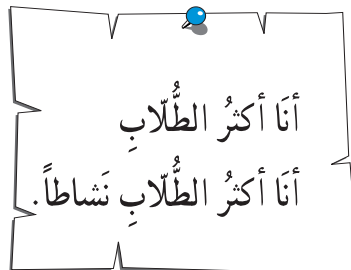 أنَا أكثرُ الطُّلّابِ
أنَا أكثرُ الطُّلّابِ نَشاطاً.